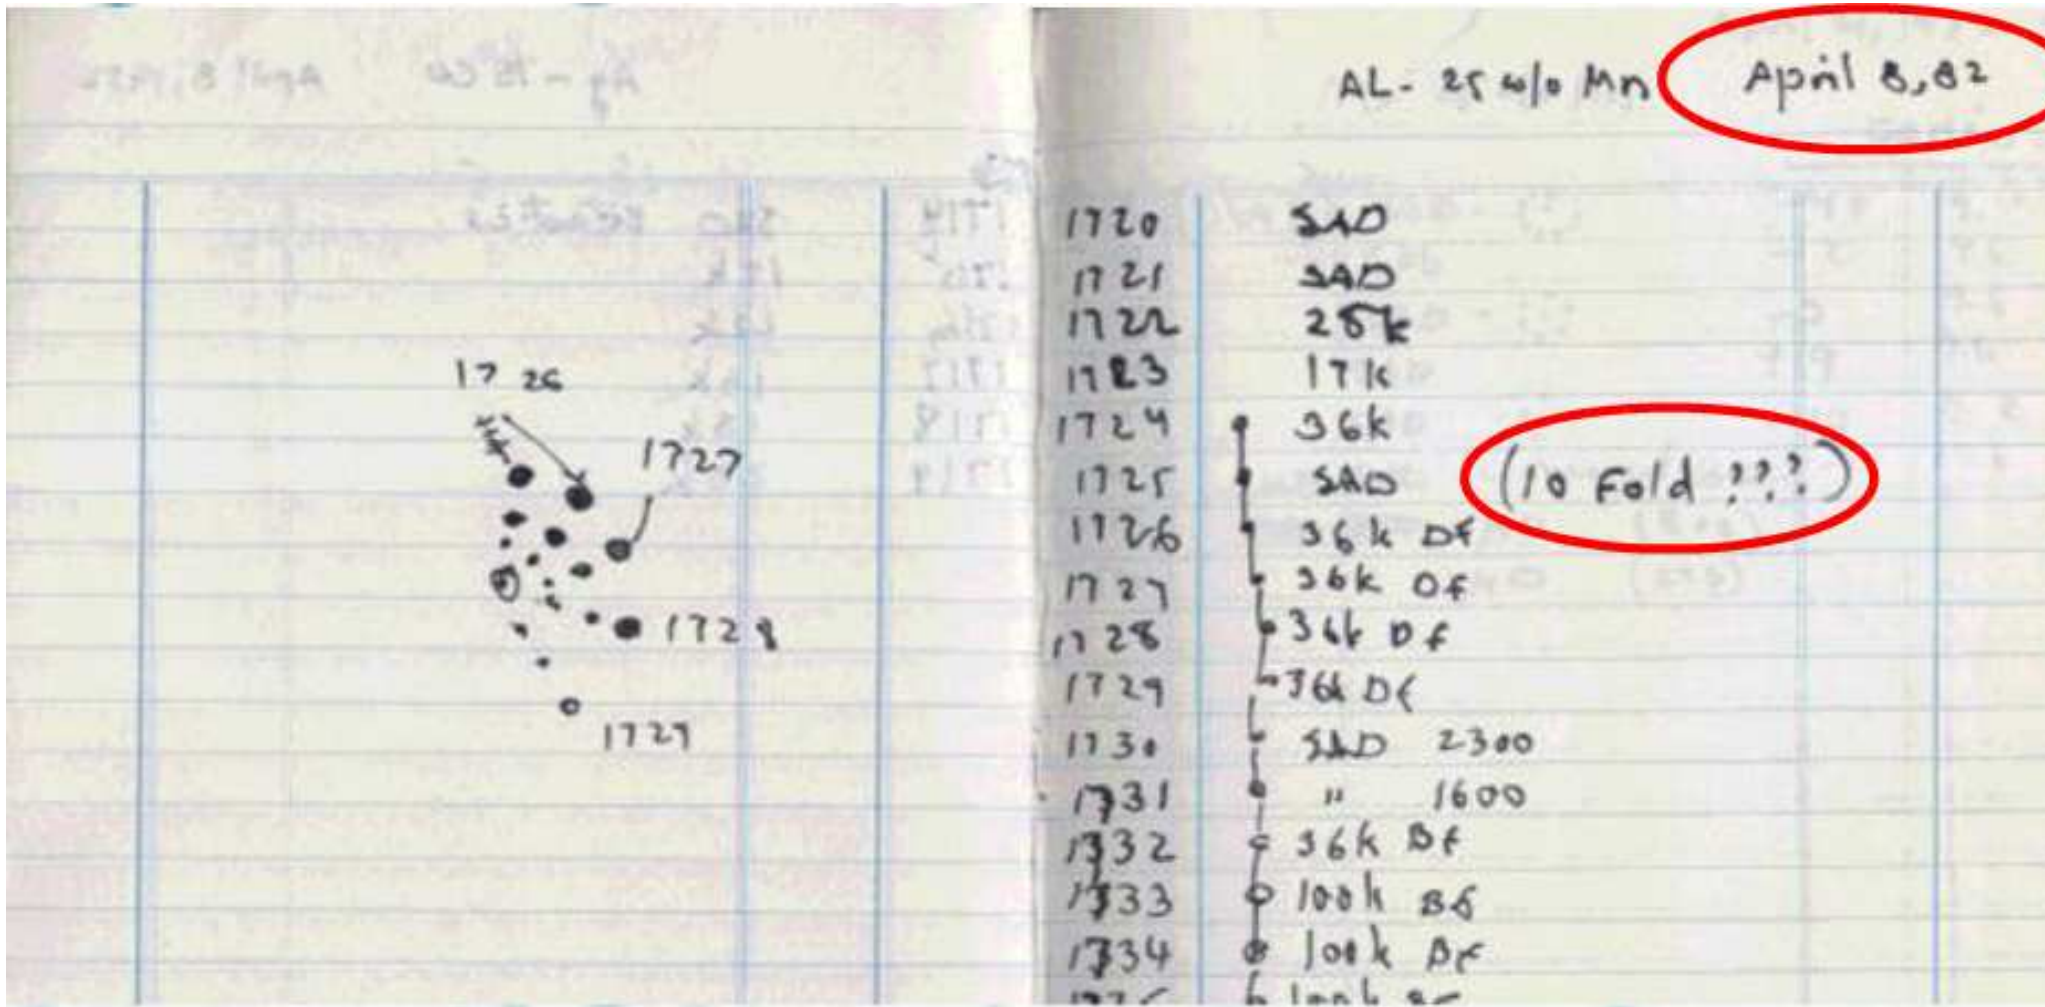 1726
1727
1728
1729
AL- 25 w/o Mn April 8, 82
1720 SAD
1721 SAD
1722 25k
1723 17k
1724 36k
1725 SAD (10 Fold ???)
1726 36k DF
1727 36k DF
1728 36k DF
1729 36k DF
1730 SAD 2300
1731 " 1600
1732 36k BF
1733 100k BF
1734 100k BF